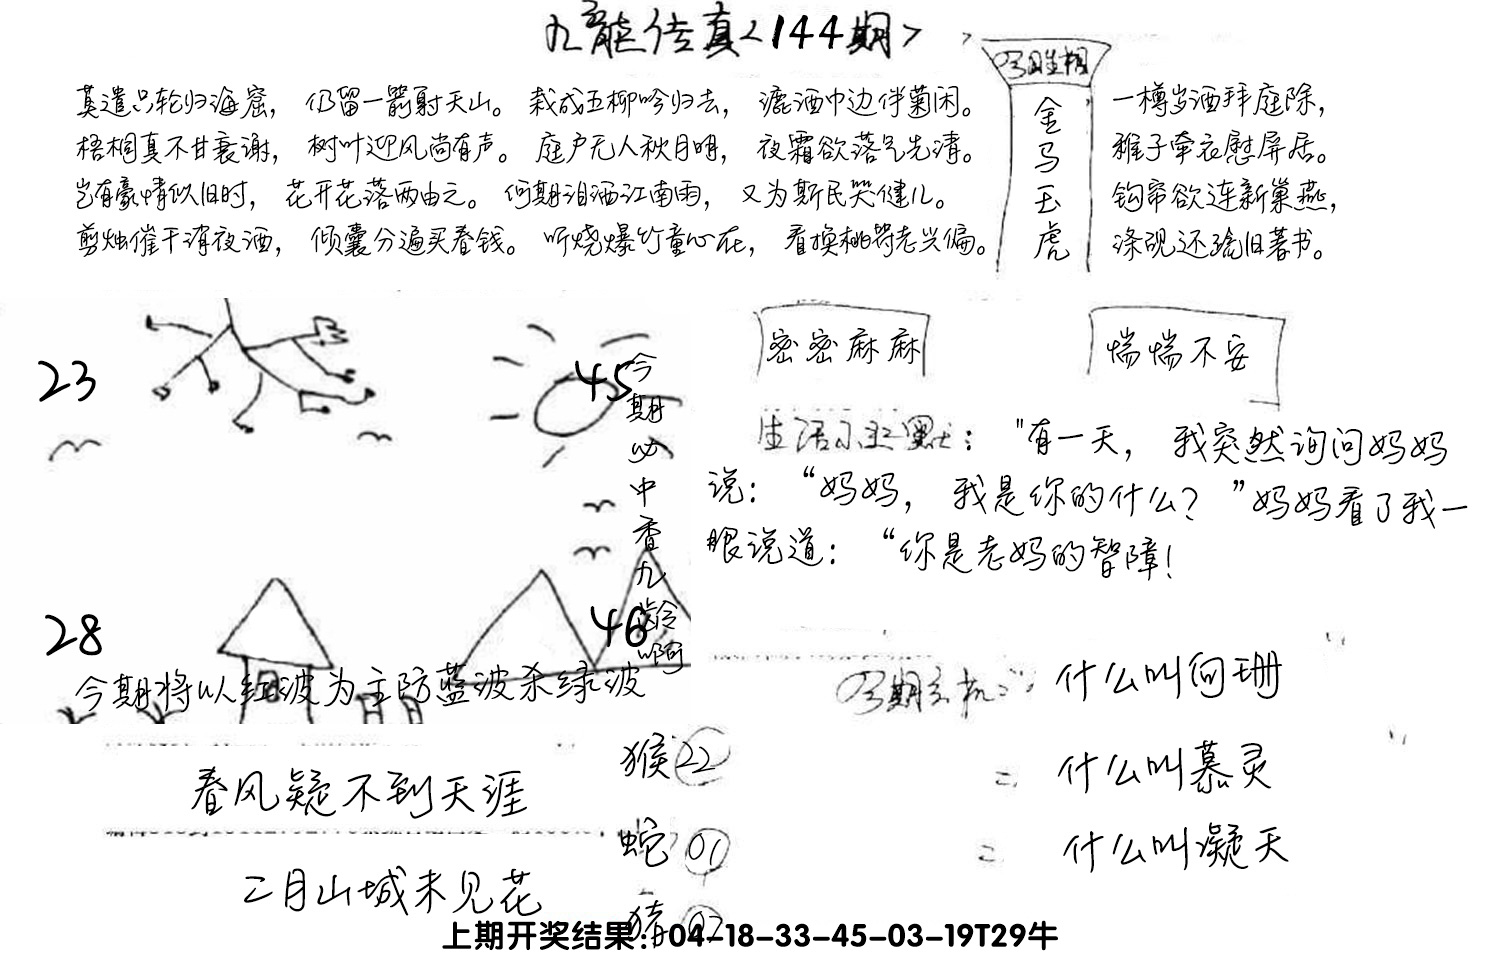 九龍传真<144期>
莫遣只轮归海窟，仍留一箭射天山。栽成五柳吟归去，漉酒巾边伴菊闲。
梧桐真不甘衰谢，树叶迎风尚有声。庭户无人秋月明，夜霜欲落气先清。
岂有豪情似旧时，花开花落两由之。何期泪洒江南雨，又为斯民哭健儿。
剪烛催干消夜酒，倾囊分遍买春钱。听烧爆竹童心在，看换桃符老兴偏。
金马玉虎
一樽岁酒拜庭除，
稚子牵衣慰屏居。
钩帘欲连新巢燕，
涤砚还疏旧著书。
密密麻麻
惴惴不安
23
45
28
46
今期必中香九龄啊
今期将以红波为主防蓝波杀绿波
生活小幽默："有一天，我突然询问妈妈
说：“妈妈，我是你的什么？”妈妈看了我一
眼说道：“你是老妈的智障！
什么叫向珊
什么叫慕灵
什么叫凝天
春风疑不到天涯
二月山城未见花
猴22
蛇01
猪02
上期开奖结果：04-18-33-45-03-19T29牛